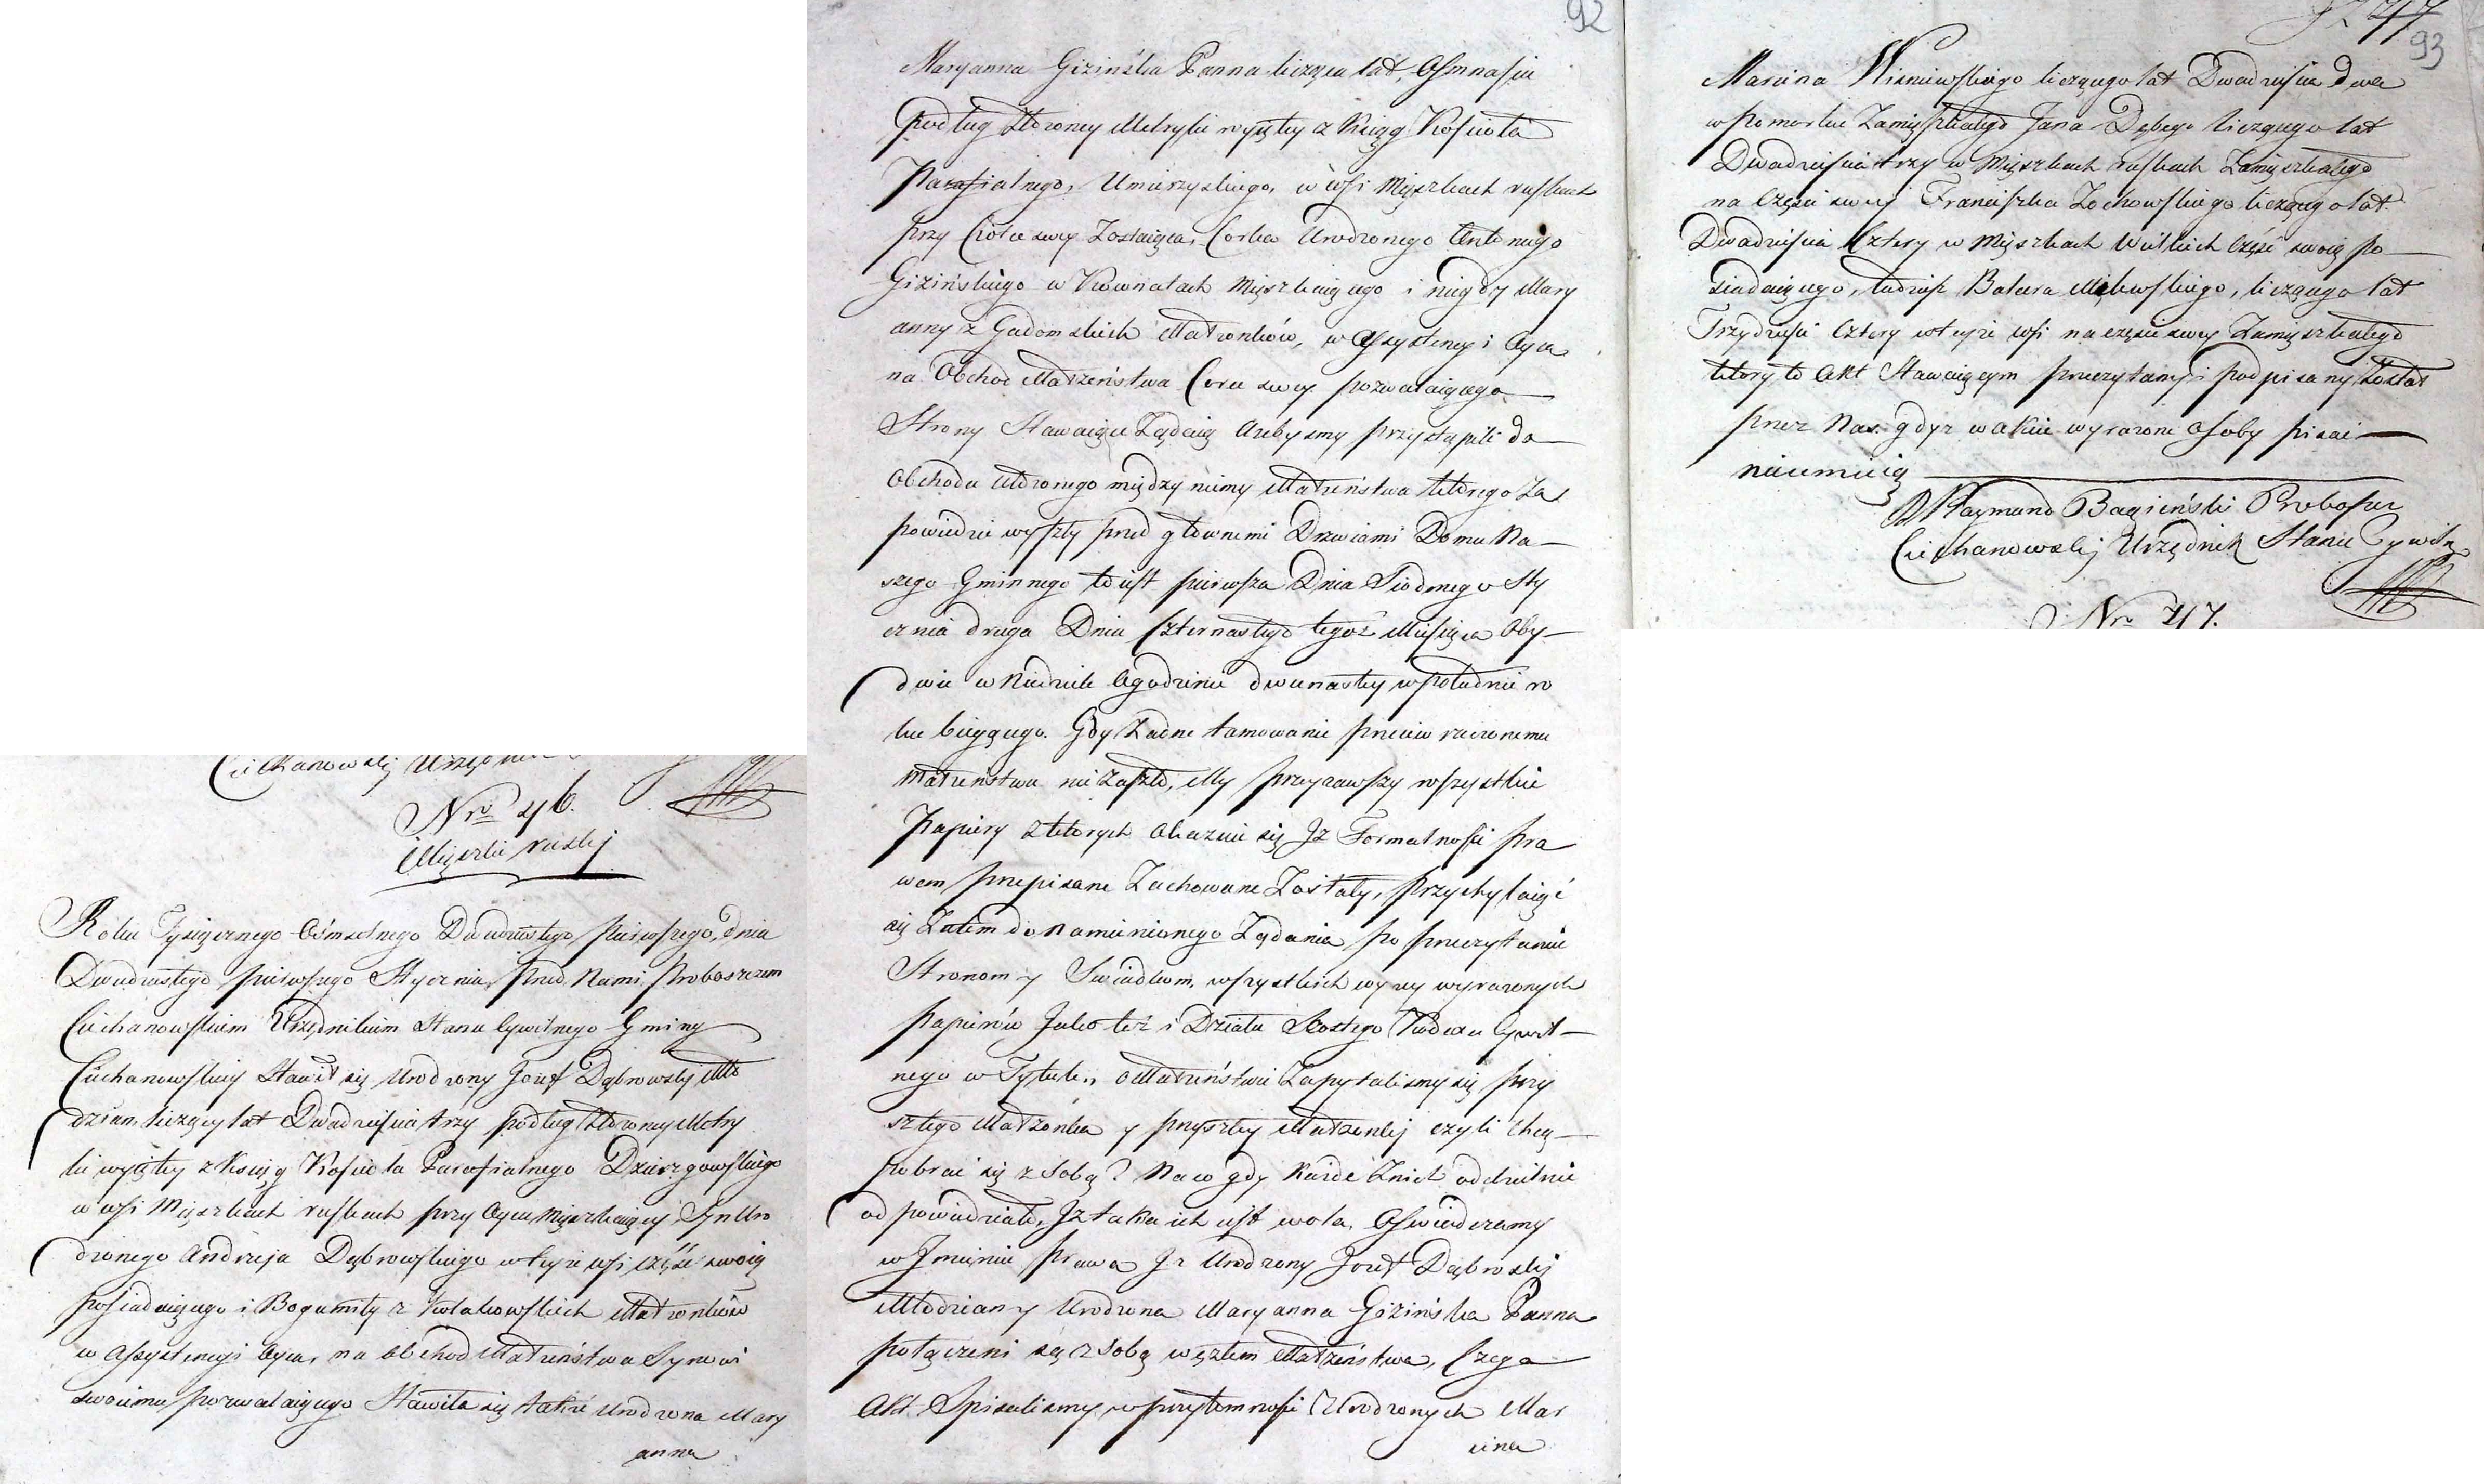 Ciechanowskj Urzędnik
Nro 46.
Miąszki ruskj
Roku Tysiącznego Osmsetnego Dwudziestego pierwszego, dnia
Dwudziestego pierwszego Stycznia, przed Nami Proboszczem
Ciechanowskiem Urzędnikiem Stanu Cywilnego Gminy
Ciechanowskiey Stawił się Urodzony Jozef Dąbrowskj Mło
dzian liczący lat Dwadzieścia trzy podług złożoney Metry
ki wyjętey z Ksiąg Kościoła Parafialnego Dzierzgowskiego
w wsi Miąszkach ruskach przy Oycu Mięszkaiący, Syn Uro
dzonego Andrzeja Dąbrowskiego w teyże wsi część swoią
posiadaiącego i Bogumiły z Kołakowskich Małżonków
w Assystencyi Oyca, na obchod Małżeństwa Synowi
swoiemu pozwalaiącego Stawiła się także Urodzona Mary
anna
92
Maryanna Giżińska Panna licząca lat, Osmnaście
podług złożoney Metryki wyjętey z Ksiąg Kościoła
Parafialnego, Umierzyskiego, w wsi Miąszkach ruskach
przy Ciotce swey Zostaiąca, Corka Urodzonego Antoniego
Giżińskiego w Kownatach Mięszkaiącego i niegdy Mary
anny z Gadomskich Małżonków, w Assystencyi Oyca
na Obchod Małżeństwa Corce swey pozwalaiącego
Strony Stawaiące Żądaią Ażebysmy przystąpili do
Obchodu ułożonego między niemy Małżeństwa którego Za
powiedzie wyszły przed głownemi Drzwiami Domu Na
szego Gminnego to iest pierwsza Dnia Siodmego Sty
cznia druga Dnia Czternastego tegoż Miesiąca Oby
dwie w Niedziele Ogodzinie dwunastey w południe ro
ku bieżącego. Gdy Żadne tamowanie przeciw rzeczonemu
Małżeństwu nie Zaszło, My przeyrzawszy wszystkie
Papiery z których Okazuie się Jż Formalności pra
wem przepisane Zachowane Zostały, przychylaiąć
się Zatem do Namienionego Żądania, po przeczytaniu
Stronom y Swiadkom, wszystkich wyzey wyrażonych
papierów Jako też i Działu Szostego Kodexu Cywil
nego w Tytule, o Małżeństwie Zapytalismy się przy
szłego Małżonka y przyszłey Małżonkj czyli chcą
pobrać się z sobą? Na co gdy Każde Znich oddzielnie
odpowiedziało, Jż taka ich iest wola, Oświadczamy
w Jmieniu prawa Jż Urodzony Jozef Dąbroskj
Młodzian y Urodzona Maryanna Giżińska Panna
połączeni są z Sobą węzłem Małżeństwa, Czego
Akt Spisalismy w przytomności Urodzonych Mar
cina
93
Marcina Wisniewskiego liczącego lat Dwadzieścia dwa
w Pomorku Zamięszkałego Jana Dębego liczącego lat
Dwadzieścia trzy w Miąszkach ruskach Zamięszkałego
na części swey Franciszka Żochowskiego liczącego lat
Dwadzieścia Cztery w Miąszkach Wielkich Część swoią po
siadaiącego, tudzież Milewskiego, liczącego lat
Trzydzieści Cztery w teyże wsi na części swey Zamięszkałego
który to Akt Stawaiącym przeczytany i podpisany Został
przez Nas. gdyż w akcie wyrażone Osoby pisać
nieumieią
X Raymund Bagieński Proboszcz
Ciechanowskj Urzędnik Stanu Cywiln
Nro 47.